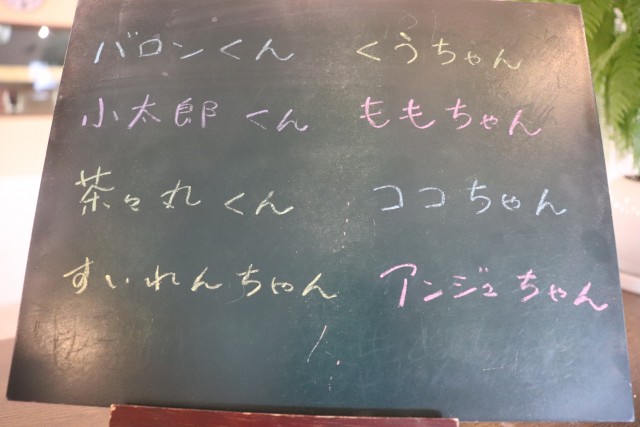 バロンくん くうちゃん
小太郎くん ももちゃん
茶々丸くん ココちゃん
すいれんちゃん アンジュちゃん